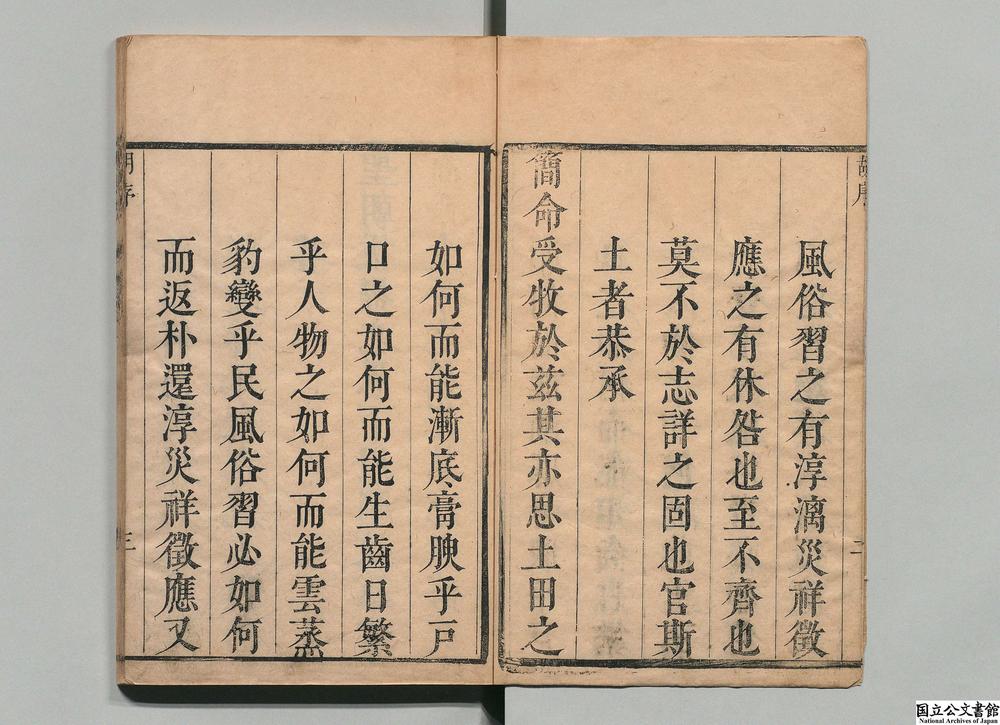 風俗習之有淳漓災祥徵
應之有休咎也至不齊也
莫不於志詳之固也官斯
土者恭承
簡命受牧於茲其亦思土田之
如何而能漸底膏腴乎戸
口之如何而能生齒日繁
乎人物之如何而能雲蒸
豹變乎民風俗習必如何
而返朴還淳災祥徵應又
序
三
国立公文書館
National Archives of Japan